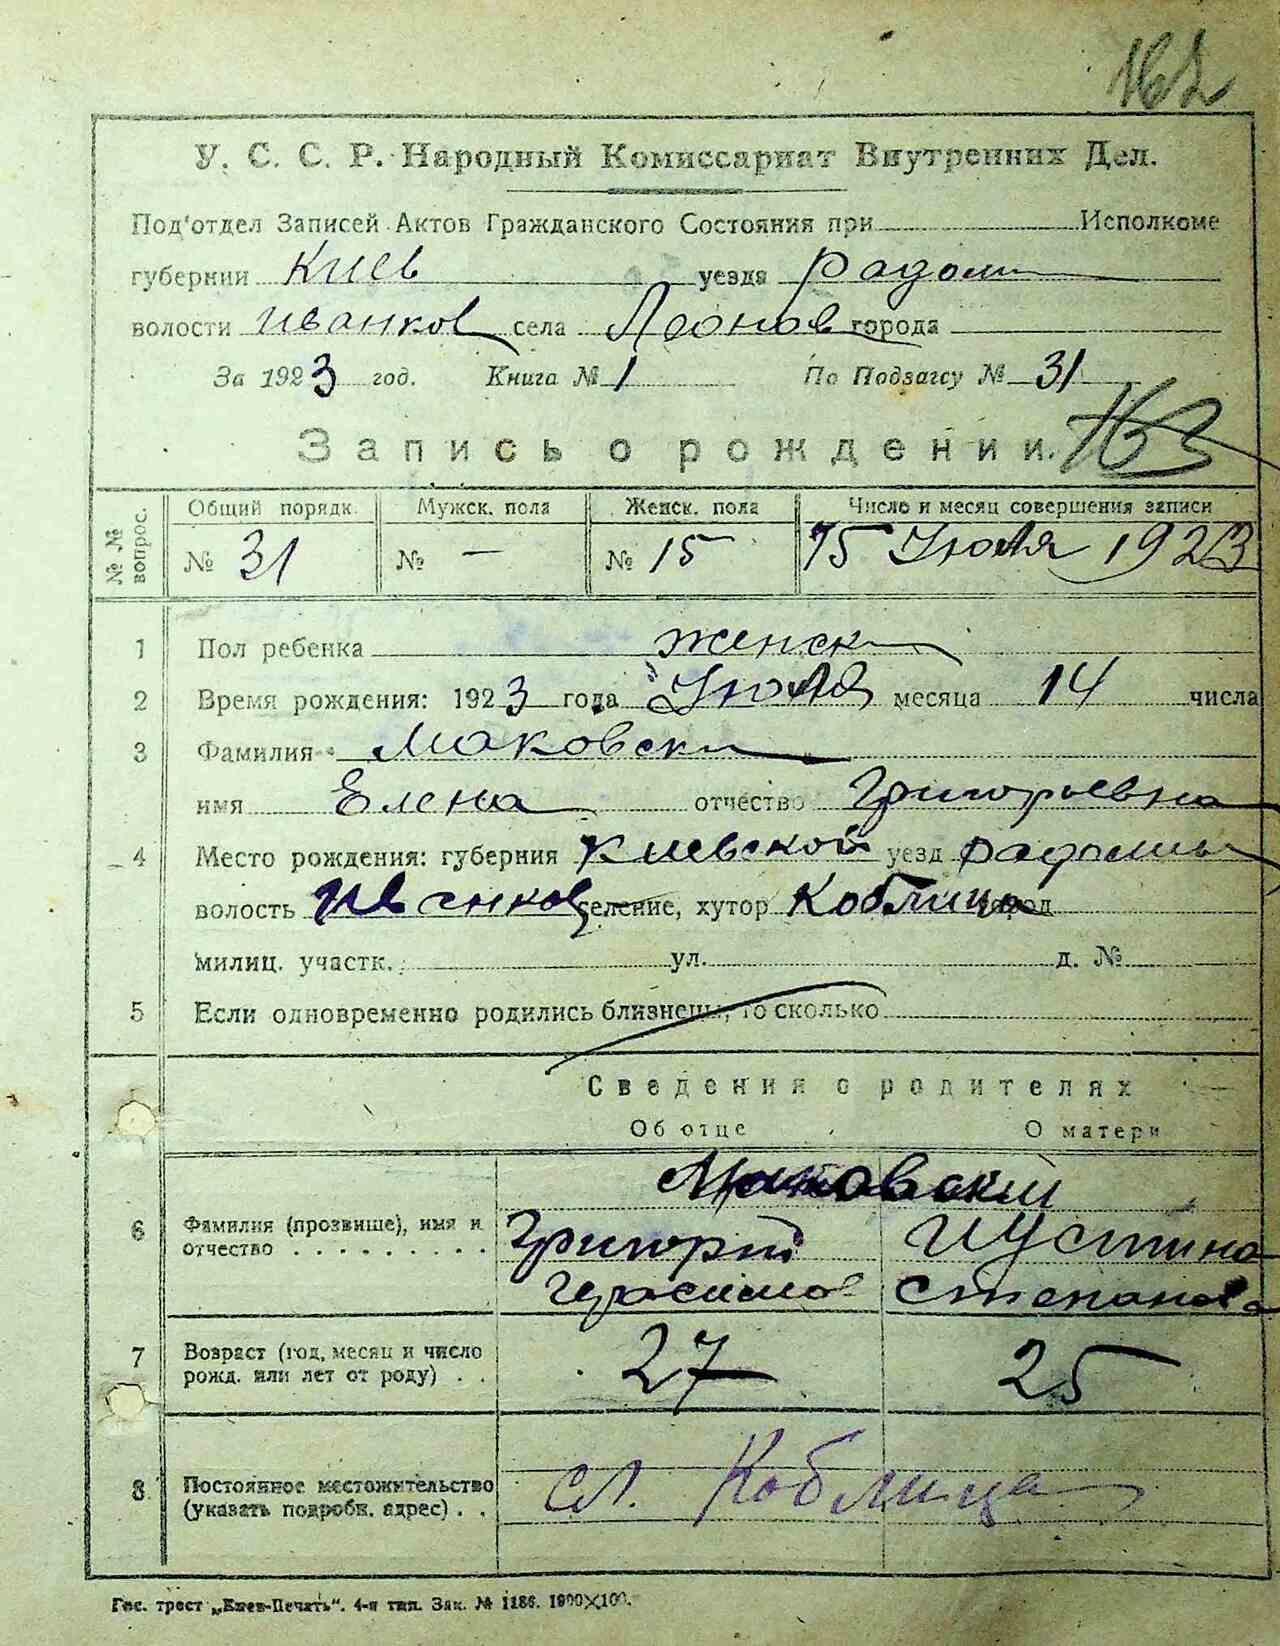 162
У. С. С. Р. Народный Комиссариат Внутренних Дел.
Под'отдел Записей Актов Гражданского Состояния при Исполкоме
губернии Киев уезда Радом
волости Иванков села Леонов города
За 1923 год. Книга № 1 По Подзагсу № 31
Запись о рождении. 163
№№ вопрос. Общий порядк. Мужск. пола Женск. пола Число и месяц совершения записи
№ 31 № — № 15 15 Июля 1923
1 Пол ребенка женск
2 Время рождения: 1923 года Июля месяца 14 числа
3 Фамилия Маковски
имя Елена отчество Григорьевна
4 Место рождения: губерния Киевской уезд Радомы
волость Иванков селение, хутор Коблица город
милиц. участк. ул. д. №
5 Если одновременно родились близнецы, то сколько
Сведения о родителях
Об отце О матери
Маковский
6 Фамилия (прозвище), имя и отчество Григорий Иустина
Герасимов Степанова
7 Возраст (год, месяц и число рожд. или лет от роду) 27 25
8 Постоянное местожительство (указать подробн. адрес) сл. Коблица
Гос. трест „Киев-Печать". 4-я тип. Зак. № 1186. 1900×100.